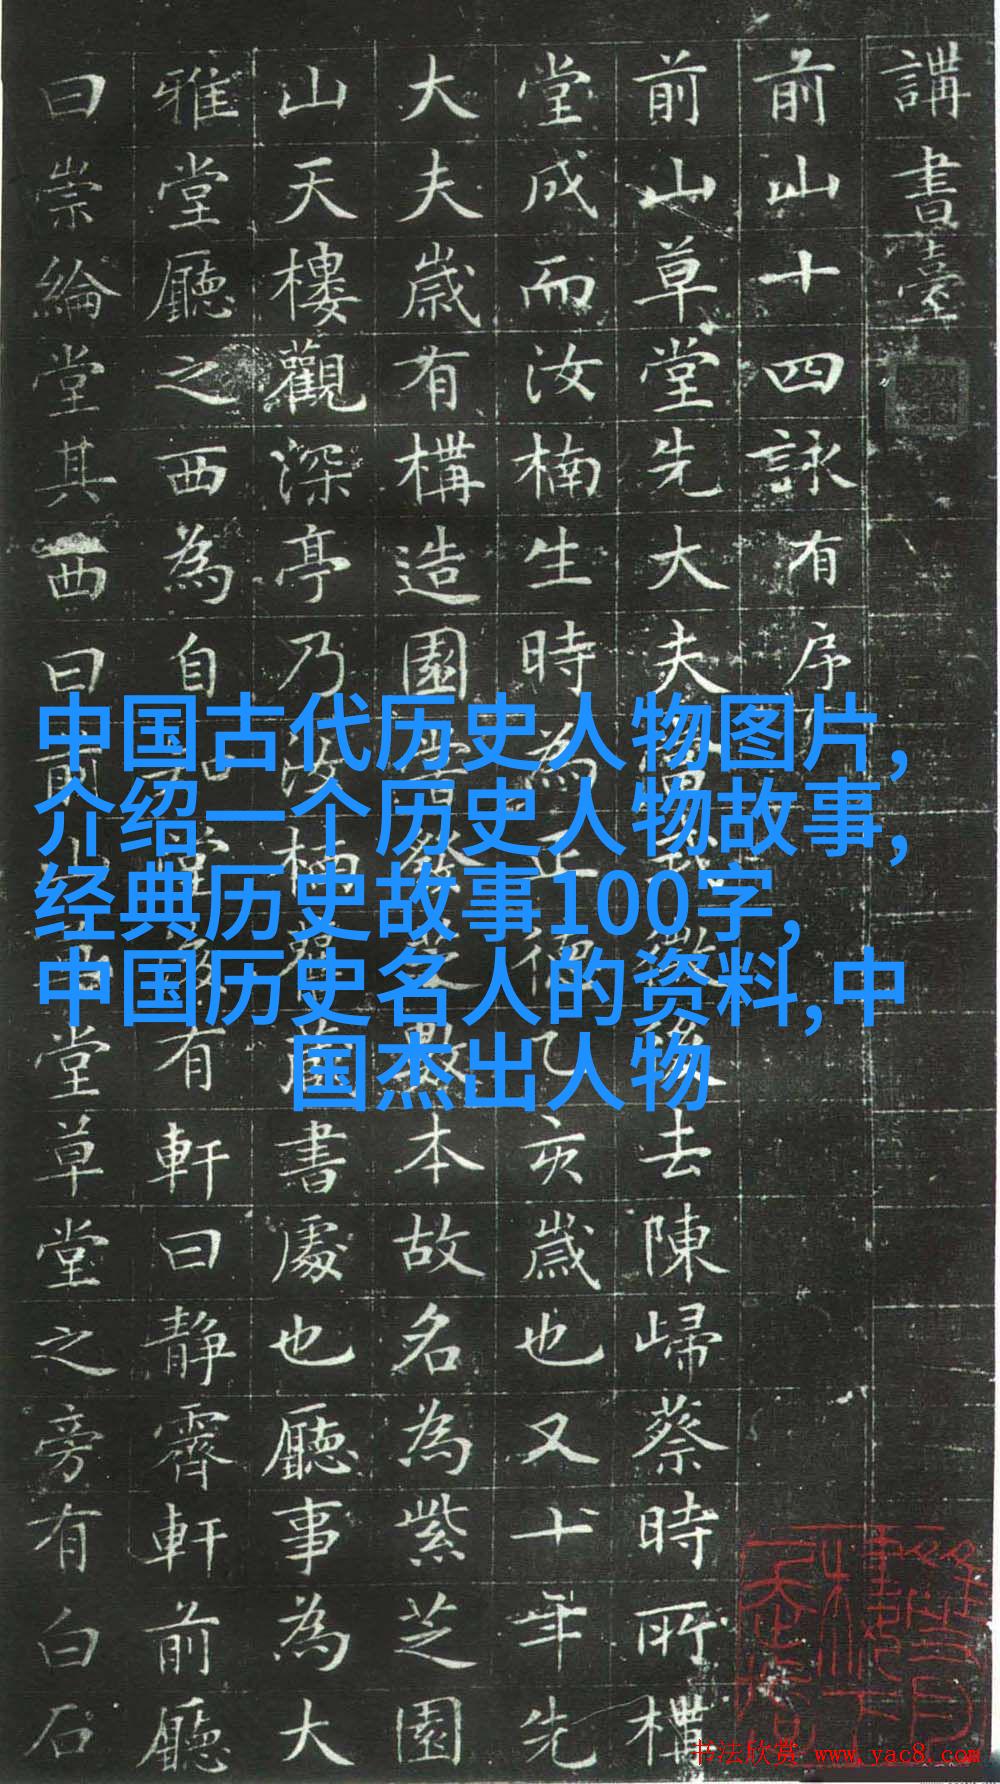 講書臺
前山十四詠有序
前山草堂先大夫後去陳歸蔡時所
堂成而汝楠生時為正德乙亥歲也又十年先
大夫歲有構造園嘗發芝數本故名為紫芝園
山天樓觀深亭乃汝楠書處也廳事為大
雅堂廳之西為自堂有軒曰靜霽軒前廳
曰崇綸堂其西曰前山堂草堂之旁有白石
中国古代历史人物图片,
介绍一个历史人物故事,
经典历史故事100字,
中国历史名人的资料,中
国杰出人物
书法欣赏 www.yac8.com